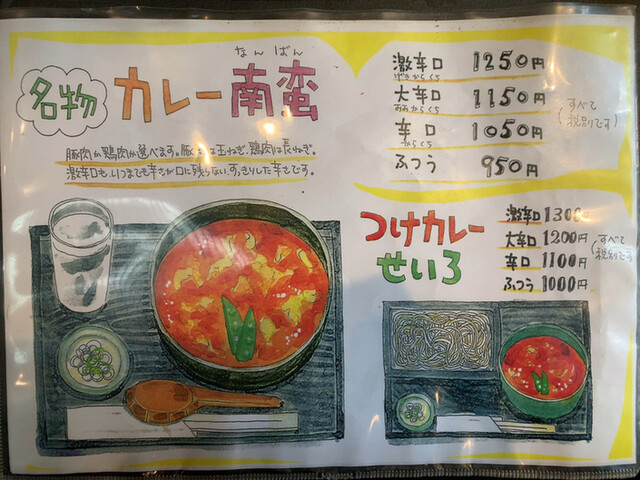 なんばん
名物 カレー南蛮
豚肉か鶏肉か選べます。豚肉は玉ねぎ、鶏肉は長ねぎ。
激辛口も、いつまでも辛さが口に残らない、すっきりした辛さです。
激辛口 1250円
げきからくち
大辛口 1150円
おおからくち
辛口 1050円
からくち
ふつう 950円
(すべて
税別です)
つけカレー
せいろ
激辛口 1300円
大辛口 1200円
辛口 1100円
ふつう 1000円
(すべて
税別です